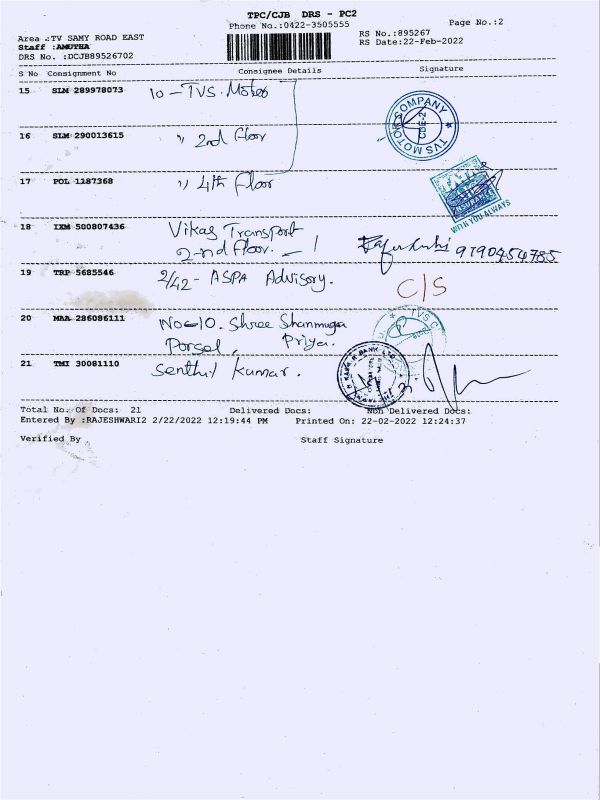 TPC/CJB DRS - PC2
Page No.:2
Phone No.:0422-3505555
Area :TV SAMY ROAD EAST
RS No.:895267
Staff :AMUTHA
RS Date:22-Feb-2022
DRS No. :DCJB89526702
S No Consignment No Consignee Details Signature
15 SLM 289978073 10 - TVS. Motor
TVS MOTOR COMPANY CBE-2
16 SLM 290013615 " 2nd floor
17 POL 1287368 " 4th floor
WITH YOU ALWAYS
18 IXM 500807436 Vikas Transport
2nd floor. 9790454785
19 TRP 5685546 2/42 - ASPA Advisory. C/S
20 MAA 286086111 No-10. Shree Shanmuga
Priya.
TVS
21 TMI 30081110 Senthil kumar.
BANK LTD
Total No. Of Docs: 21 Delivered Docs: Non Delivered Docs:
Entered By :RAJESHWARI2 2/22/2022 12:19:44 PM Printed On: 22-02-2022 12:24:37
Verified By Staff Signature